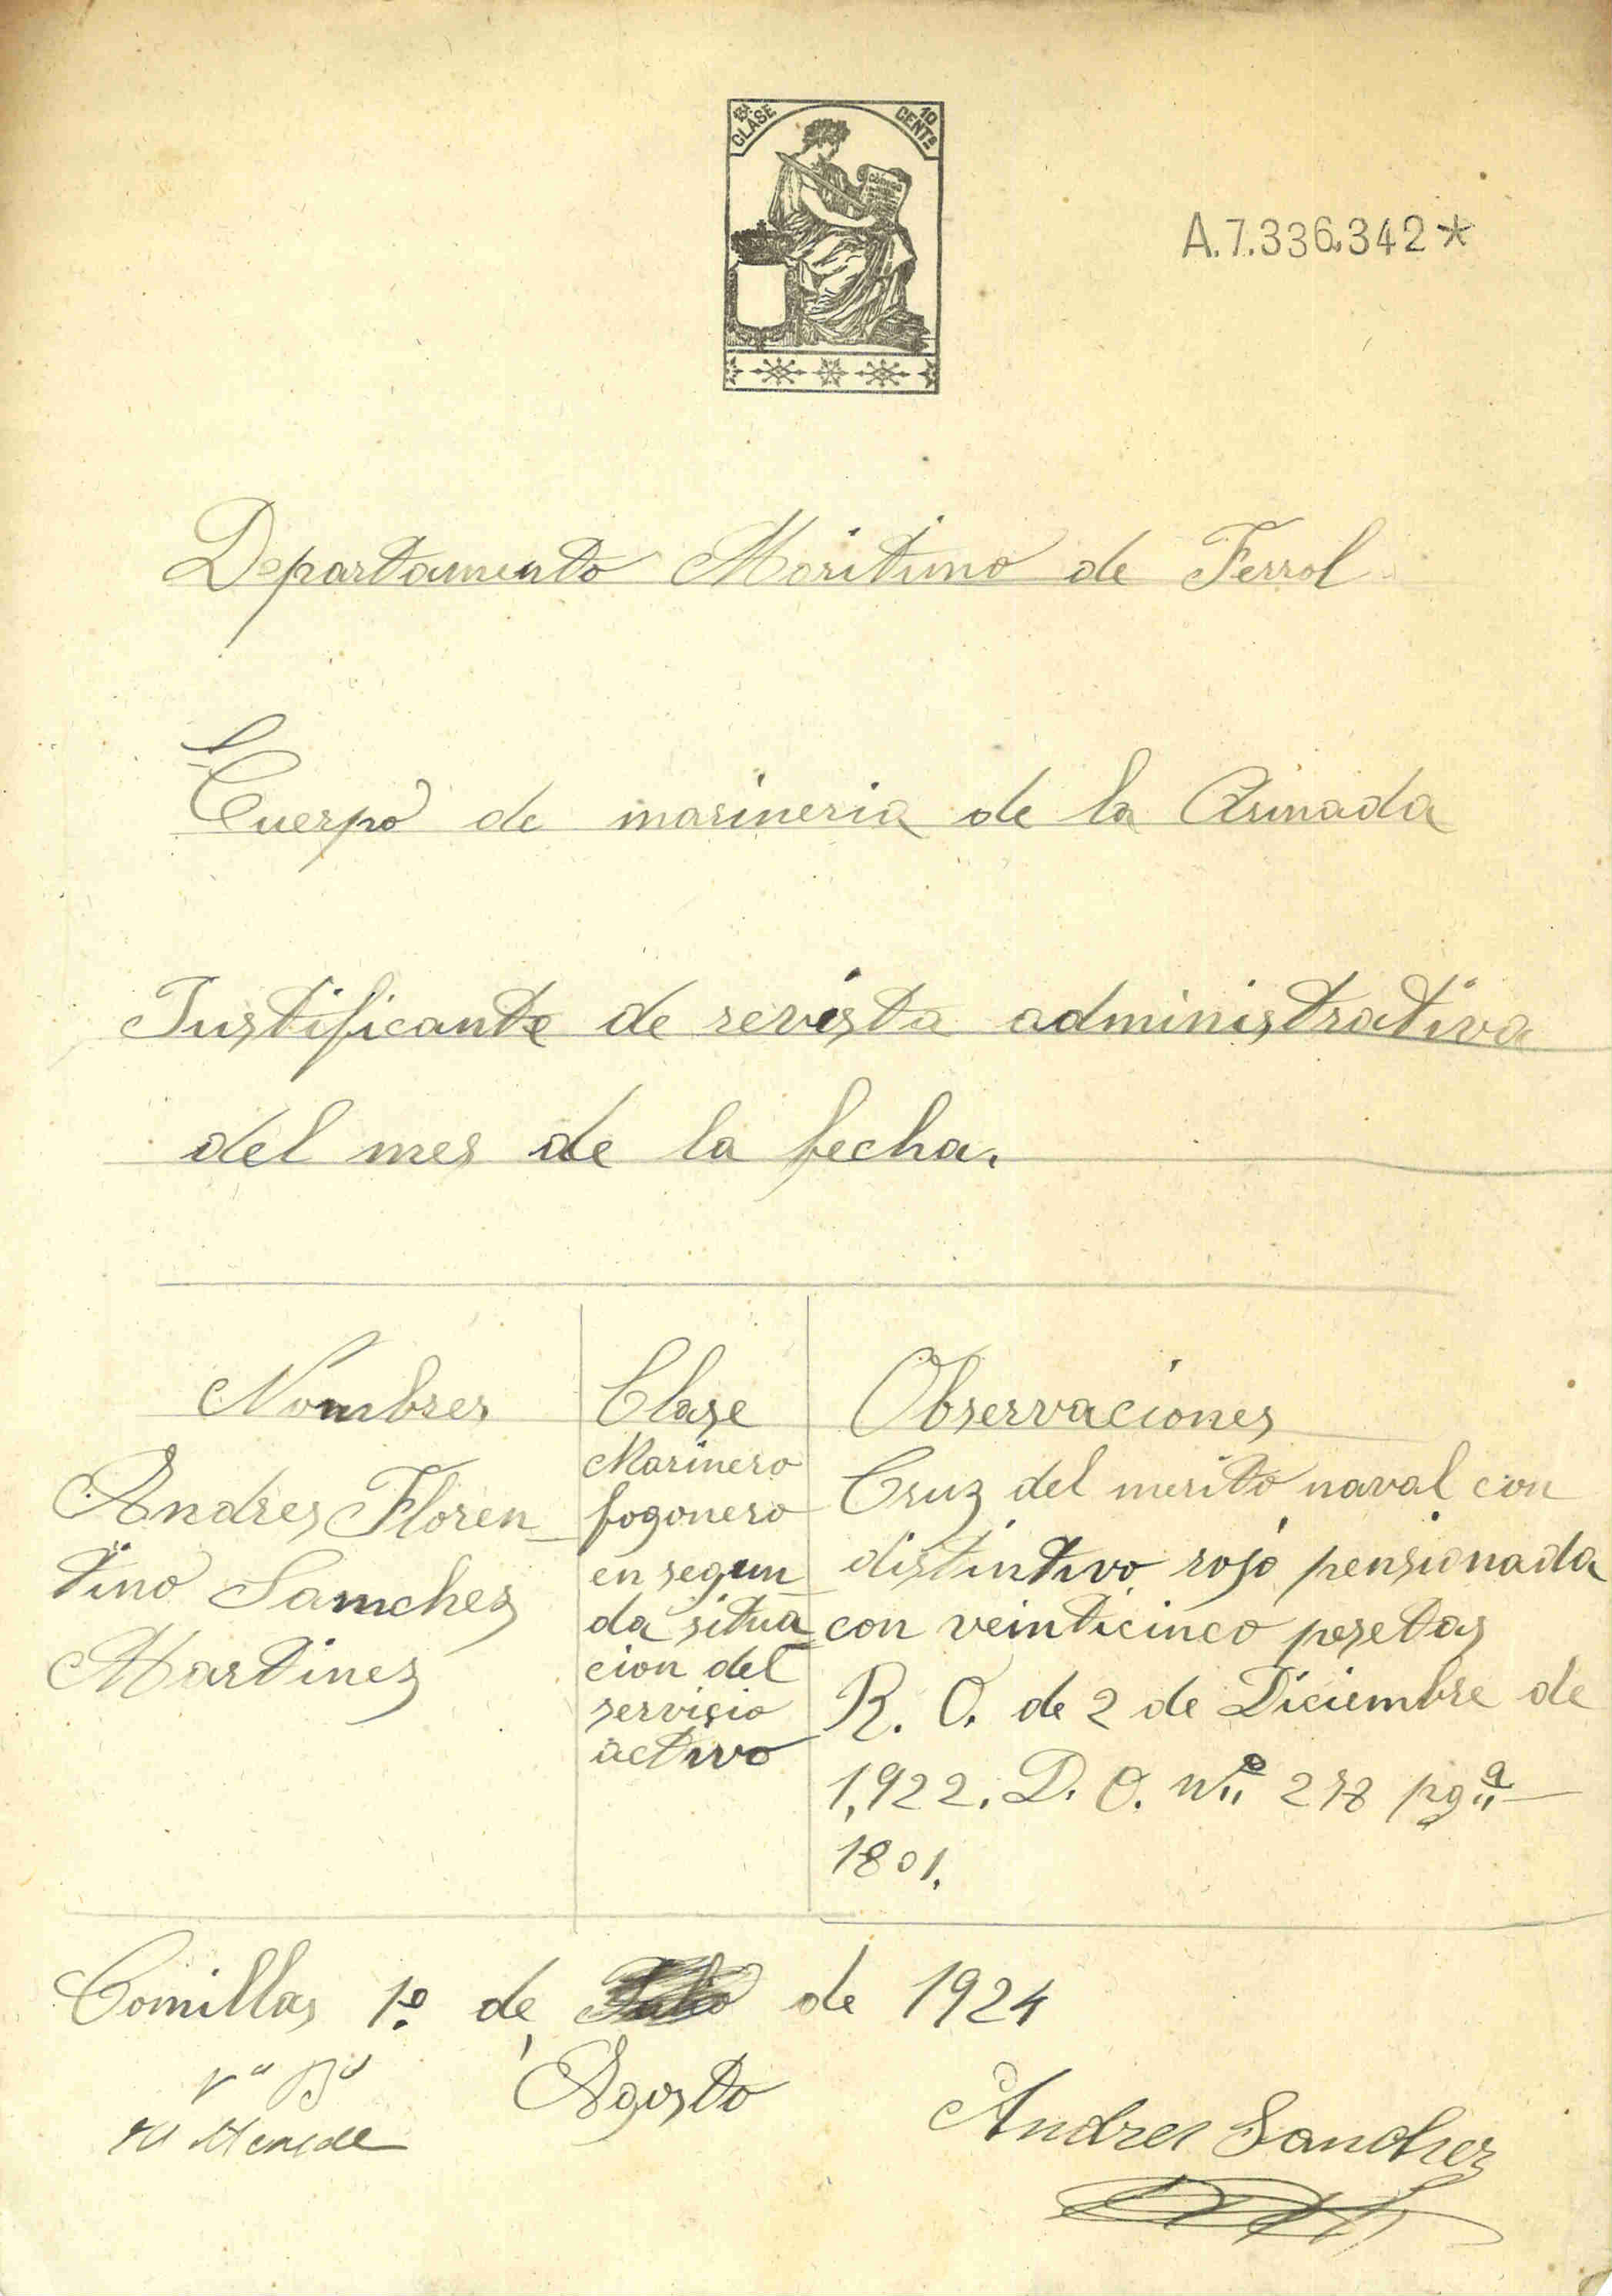 13ª CLASE
10 CENTs
CODIGO
A.7.336.342*
Departamento Maritimo de Ferrol
Cuerpo de marineria de la Armada
Justificante de revista administrativa
del mes de la fecha.
Nombres
Andres Floren
tino Samchez
Martinez
Clase
Marinero
fogonero
en segun
da situa
cion del
servicio
activo
Observaciones
Cruz del merito naval con
distintivo rojo pensionada
con veinticinco pesetas
R. O. de 2 de Diciembre de
1,922. D. O. nº 278 pgª
1801.
Comillas 1º de de 1924
Agosto
Vº Bº
El Alcalde
Andres Sanchez